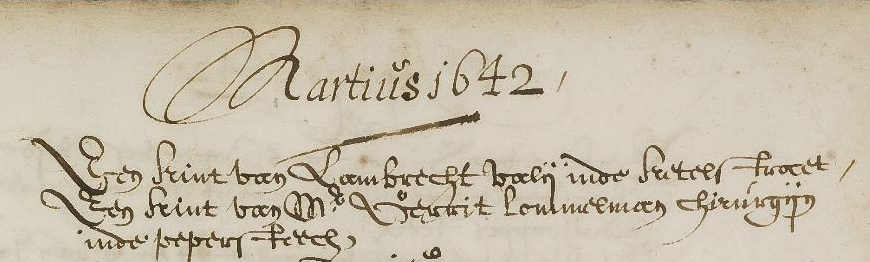 Martius 1642,
Een kint van Lambrecht valij inde ketelstraet,
Een kint van Mr Gerrit Lommelman chirurgijn
inde pepersteech,